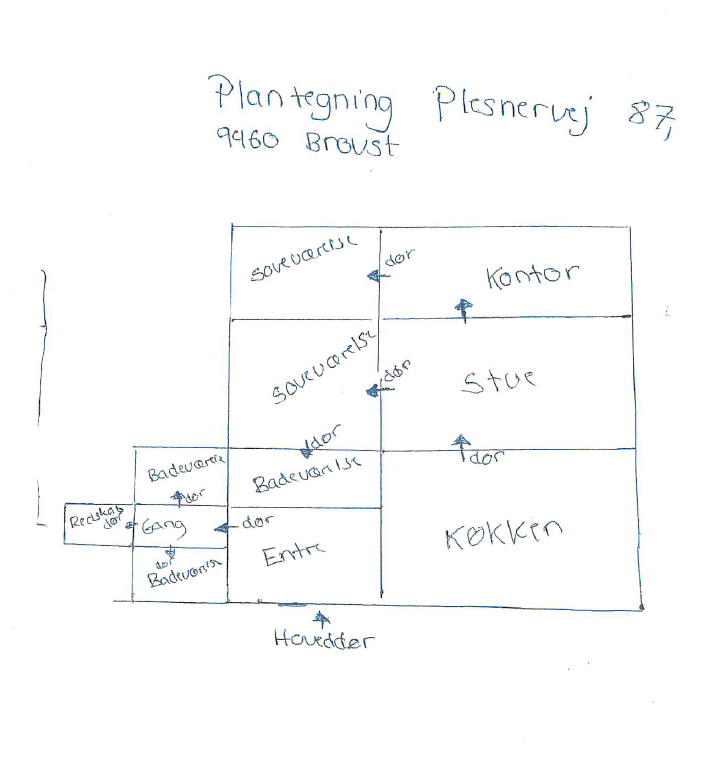 Plantegning Plesnervej 87,
9460 Brovst
soveværelse
dør
Kontor
soveværelse
dør
Stue
dør
Badeværelse
dør
Badeværelse
dør
Redskab
dør
Gang
dør
Entre
Køkken
dør
Badeværelse
Hoveddør